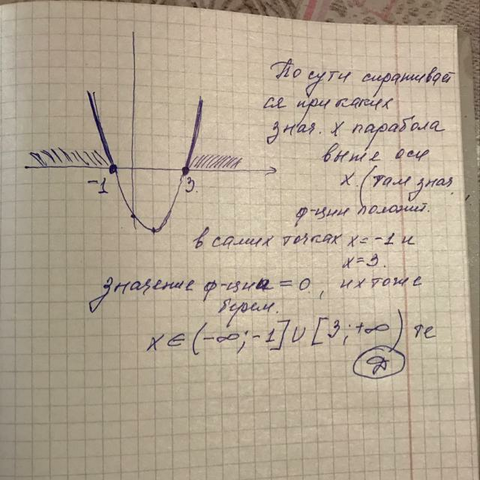 По сути спрашивает
ся при каких
знач. x парабола
выше оси
x (там знач.
ф-ции положит.
-1
3
в самих точках x = -1 и
x = 3.
значение ф-ции = 0, их тоже
берем.
x ∈ (-∞; -1] ∪ [3; +∞) те
Д